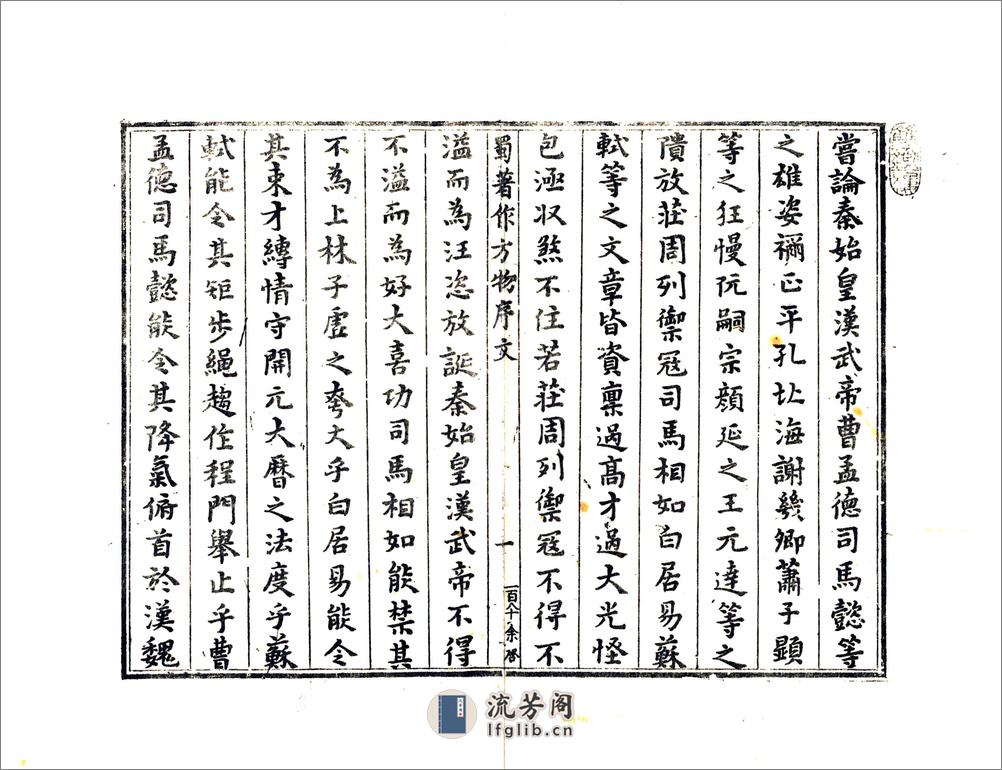 嘗論秦始皇漢武帝曹孟德司馬懿等
之雄姿禰正平孔北海謝幾卿蕭子顯
等之狂慢阮嗣宗顏延之王元達等之
隤放莊周列禦冦司馬相如白居易蘇
軾等之文章皆資禀過髙才過大光怪
包涵収煞不住若莊周列禦冦不得不
蜀著作方物序文 一 一百个余啓
溢而為汪恣放誕秦始皇漢武帝不得
不溢而為好大喜功司馬相如能禁其
不為上林子虛之夸大乎白居易能令
其束才縛情守開元大曆之法度乎蘇
軾能令其矩步繩趨作程門舉止乎曹
孟德司馬懿能令其降氣俯首於漢魏
流芳阁
lfglib.cn